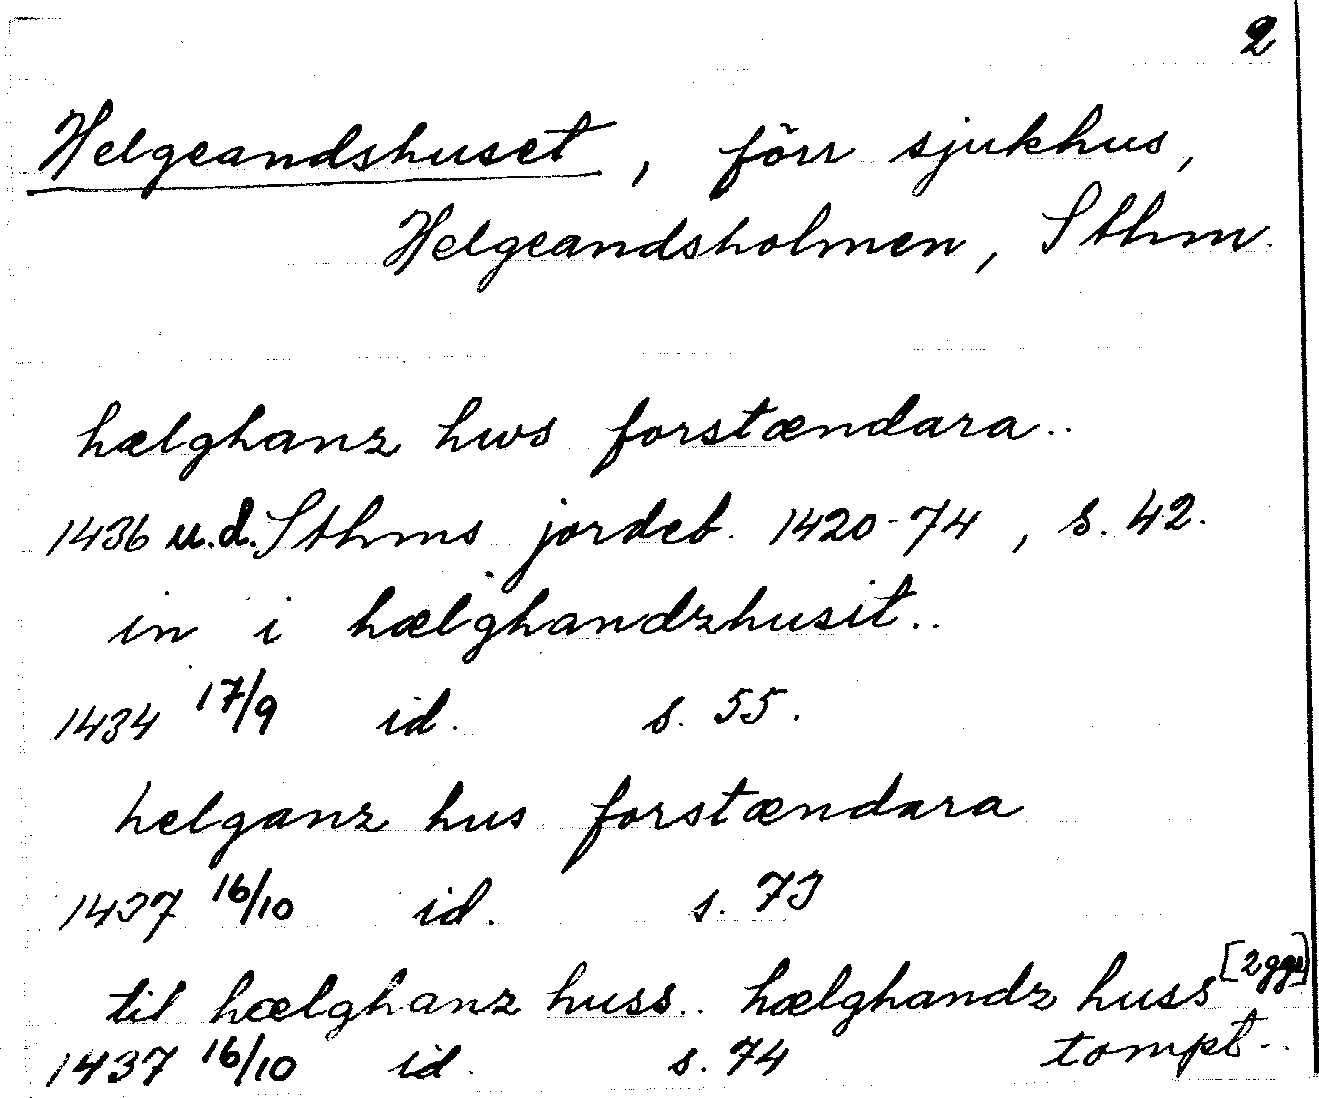 2
Helgeandshuset, förr sjukhus,
Helgeandsholmen, Sthm.
hælghanz hws forstændara..
1436 u.d. Sthms jordeb. 1420-74, s. 42.
in i hælghandzhusit..
1434 17/9 id. s. 55.
helganz hus forstændara
1437 16/10 id. s. 73
til hælghanz huss.. hælghandz huss [2 ggr]
tompt..
1437 16/10 id. s. 74